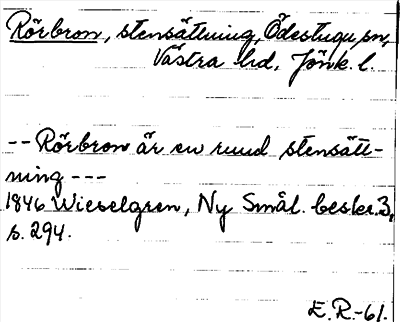 Rörbron, stensättning, Ödestugu sn,
Västra hd, Jönk. l.
-- Rörbron är en rund stensätt-
ning ---
1846 Wieselgren, Ny Smål. beskr. 3,
s. 294.
E. R.-61.